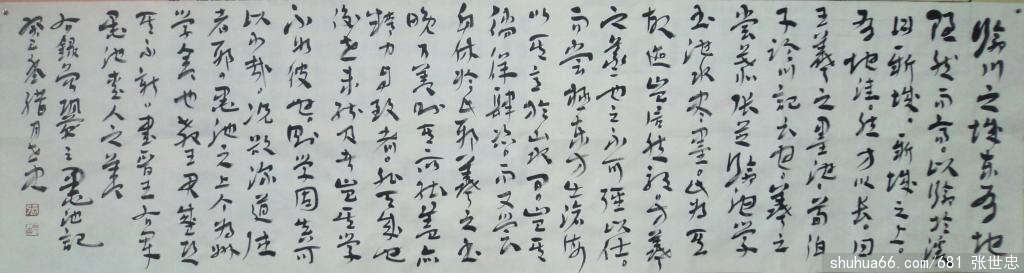 臨川之城東有地
隱然而高以臨於溪
曰新城新城之上
有地洼然方以長曰
王羲之之墨池荀伯
子臨川記云也羲之
嘗慕張芝臨池學
書池水尽墨此為其
故迹豈信然邪方羲
之之不可強以仕
而尝極东方出滄海
以其意於山水間豈其
徜徉肆恣而又尝
自休於此邪羲之書
晚乃善則其所能盖亦
精力自致者非天成也
後世未能及者豈其学
不如彼也則学固豈可
以少哉况欲深道德
者耶墨池之上今为州
学舍也教王君盛恐
其不彰書晋王右军
墨池人之善
右録曾鞏之墨池記
癸巳冬腊月世忠
shuhua66.com/681 张世忠